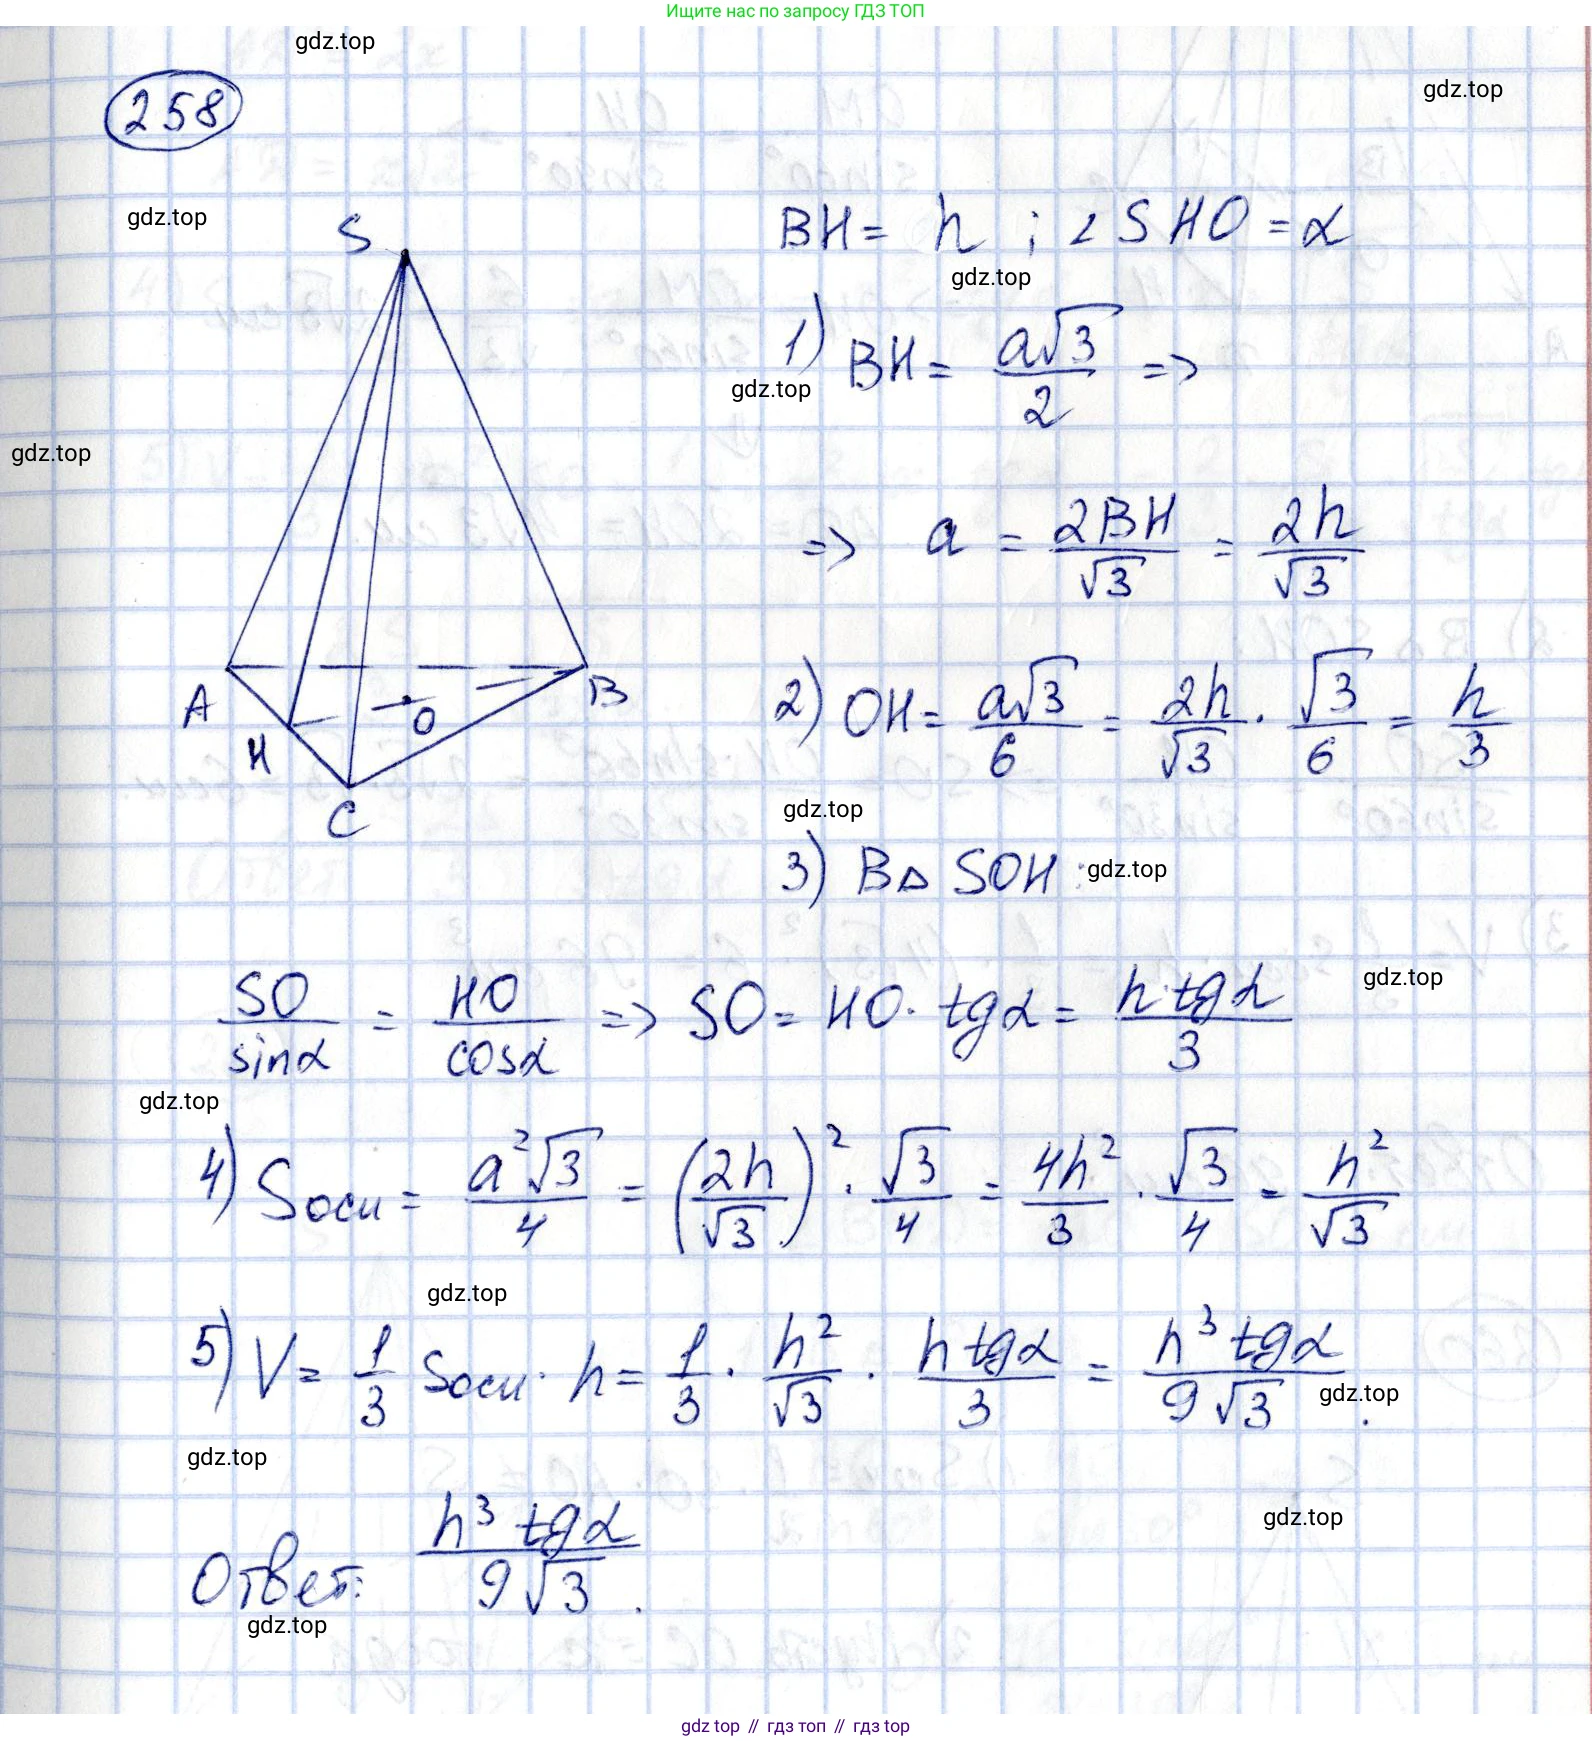 Ищите нас по запросу ГДЗ ТОП
gdz.top
258
gdz.top
gdz.top
S
BH = h ; ∠SHO = α
gdz.top
1) BH = a√3/2 =>
gdz.top
gdz.top
=> a = 2BH/√3 = 2h/√3
A
B
O
H
C
2) OH = a√3/6 = 2h/√3 · √3/6 = h/3
gdz.top
3) В△ SOH :
gdz.top
gdz.top
SO/sinα = HO/cosα => SO = HO · tgα = h·tgα/3
gdz.top
4) Sосн = a²√3/4 = (2h/√3)² · √3/4 = 4h²/3 · √3/4 = h²/√3
gdz.top
5) V = 1/3 Sосн · h = 1/3 · h²/√3 · h tgα/3 = h³ tgα/9√3 .
gdz.top
gdz.top
gdz.top
Ответ: h³ tgα/9√3 .
gdz.top
gdz.top // гдз топ // гдз.top